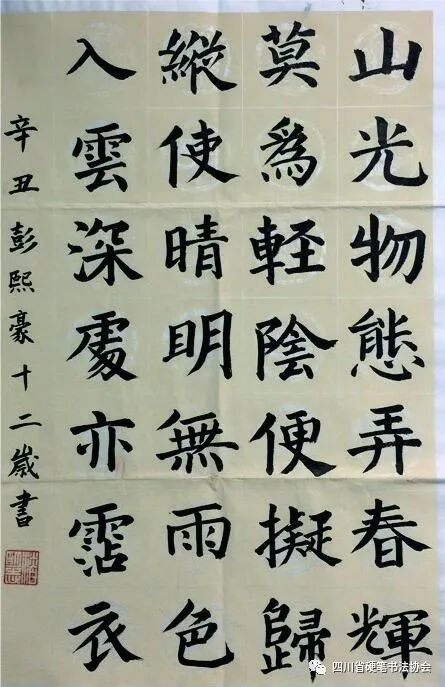 山光物態弄春輝
莫為軽陰便擬歸
縱使晴明無雨色
入雲深處亦霑衣
辛丑彭熙豪十二歲書
四川省硬笔书法协会